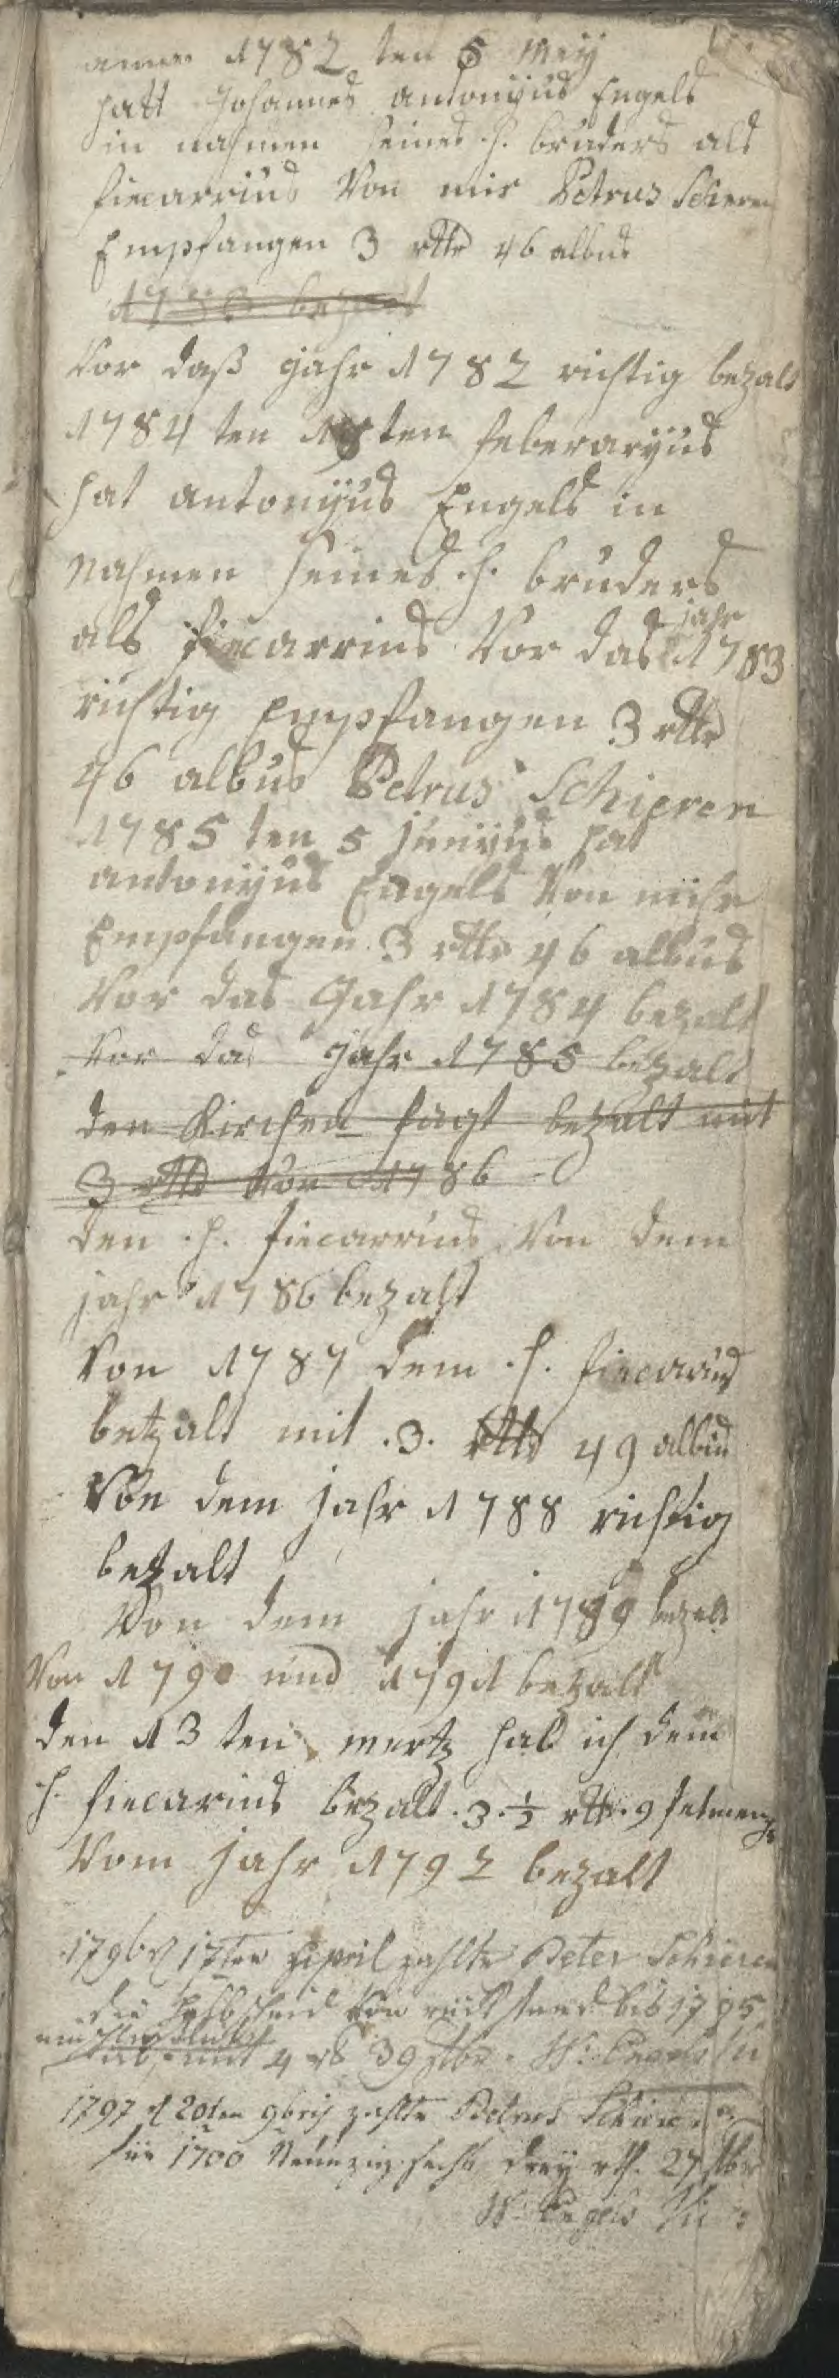 anno 1782 ten 5 Meÿ
hatt Johannes antonÿus Engels
in nahmen seines h. bruders als
fiecarrius Von mir Petrus Schieren
Empfangen 3 rttr 46 albus
1783 bezalt
Vor daß jahr 1782 richtig bezalt
1784 ten 18ten feberarÿus
hat antonÿus Engels in
nahmen seines h. bruders
als fiecarrius Vor das jahr 1783
richtig Empfangen 3 rttr
46 albus Petrus Schieren
1785 ten 5 junÿus hat
antonÿus Engels Von mihr
Empfangen 3 rttr 46 albus
Vor das Jahr 1784 bezalt
Vor das jahr 1785 bezalt
den Kirchen fagt bezalt mit
3 rttr Vor 1786
den h. fiecarrius Von dem
jahr 1786 bezalt
Von 1787 dem h. fiecarius
betzalt mit .3. rttr 49 albus
Von dem jahr 1788 richtig
betzalt
Von dem jahr 1789 bezalt
Von 1790 und 1791 bezalt
den 13 ten mertz hab ich dem
h. fiecarius bezalt .3.½ rttr. 9
Vom jahr 1792 bezalt
1796 d 17ten april zahlte Peter Schieren
die Halbscheid Von rückstand bis 1795
mit 4 rs 39 stbr. W: Engels Vic
1797 d 20ten 9bris zahlte Petrus Schieren
für 1700 Neunzig sechs dreÿ rth. 27 stbr
W. Engels Vic